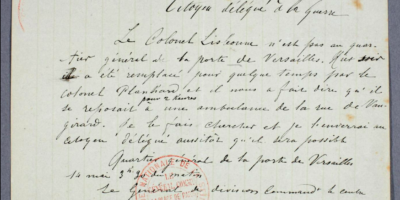 Citoyen délégué à la Guerre
Le Colonel Lisbonne n'est pas au quar-
tier général à la porte de Versailles. Hier soir
il a été remplacé pour quelque temps par le
colonel et il nous a fait dire qu'il
pour 2 heures
se reposait à une ambulance de la rue de Vau-
girard. Je le fais chercher et je l'enverrai au
citoyen délégué aussitôt qu'il sera possible
Quartier général de la porte de Versailles
14 mai 3h du matin
Le Général de division Commandt le centre